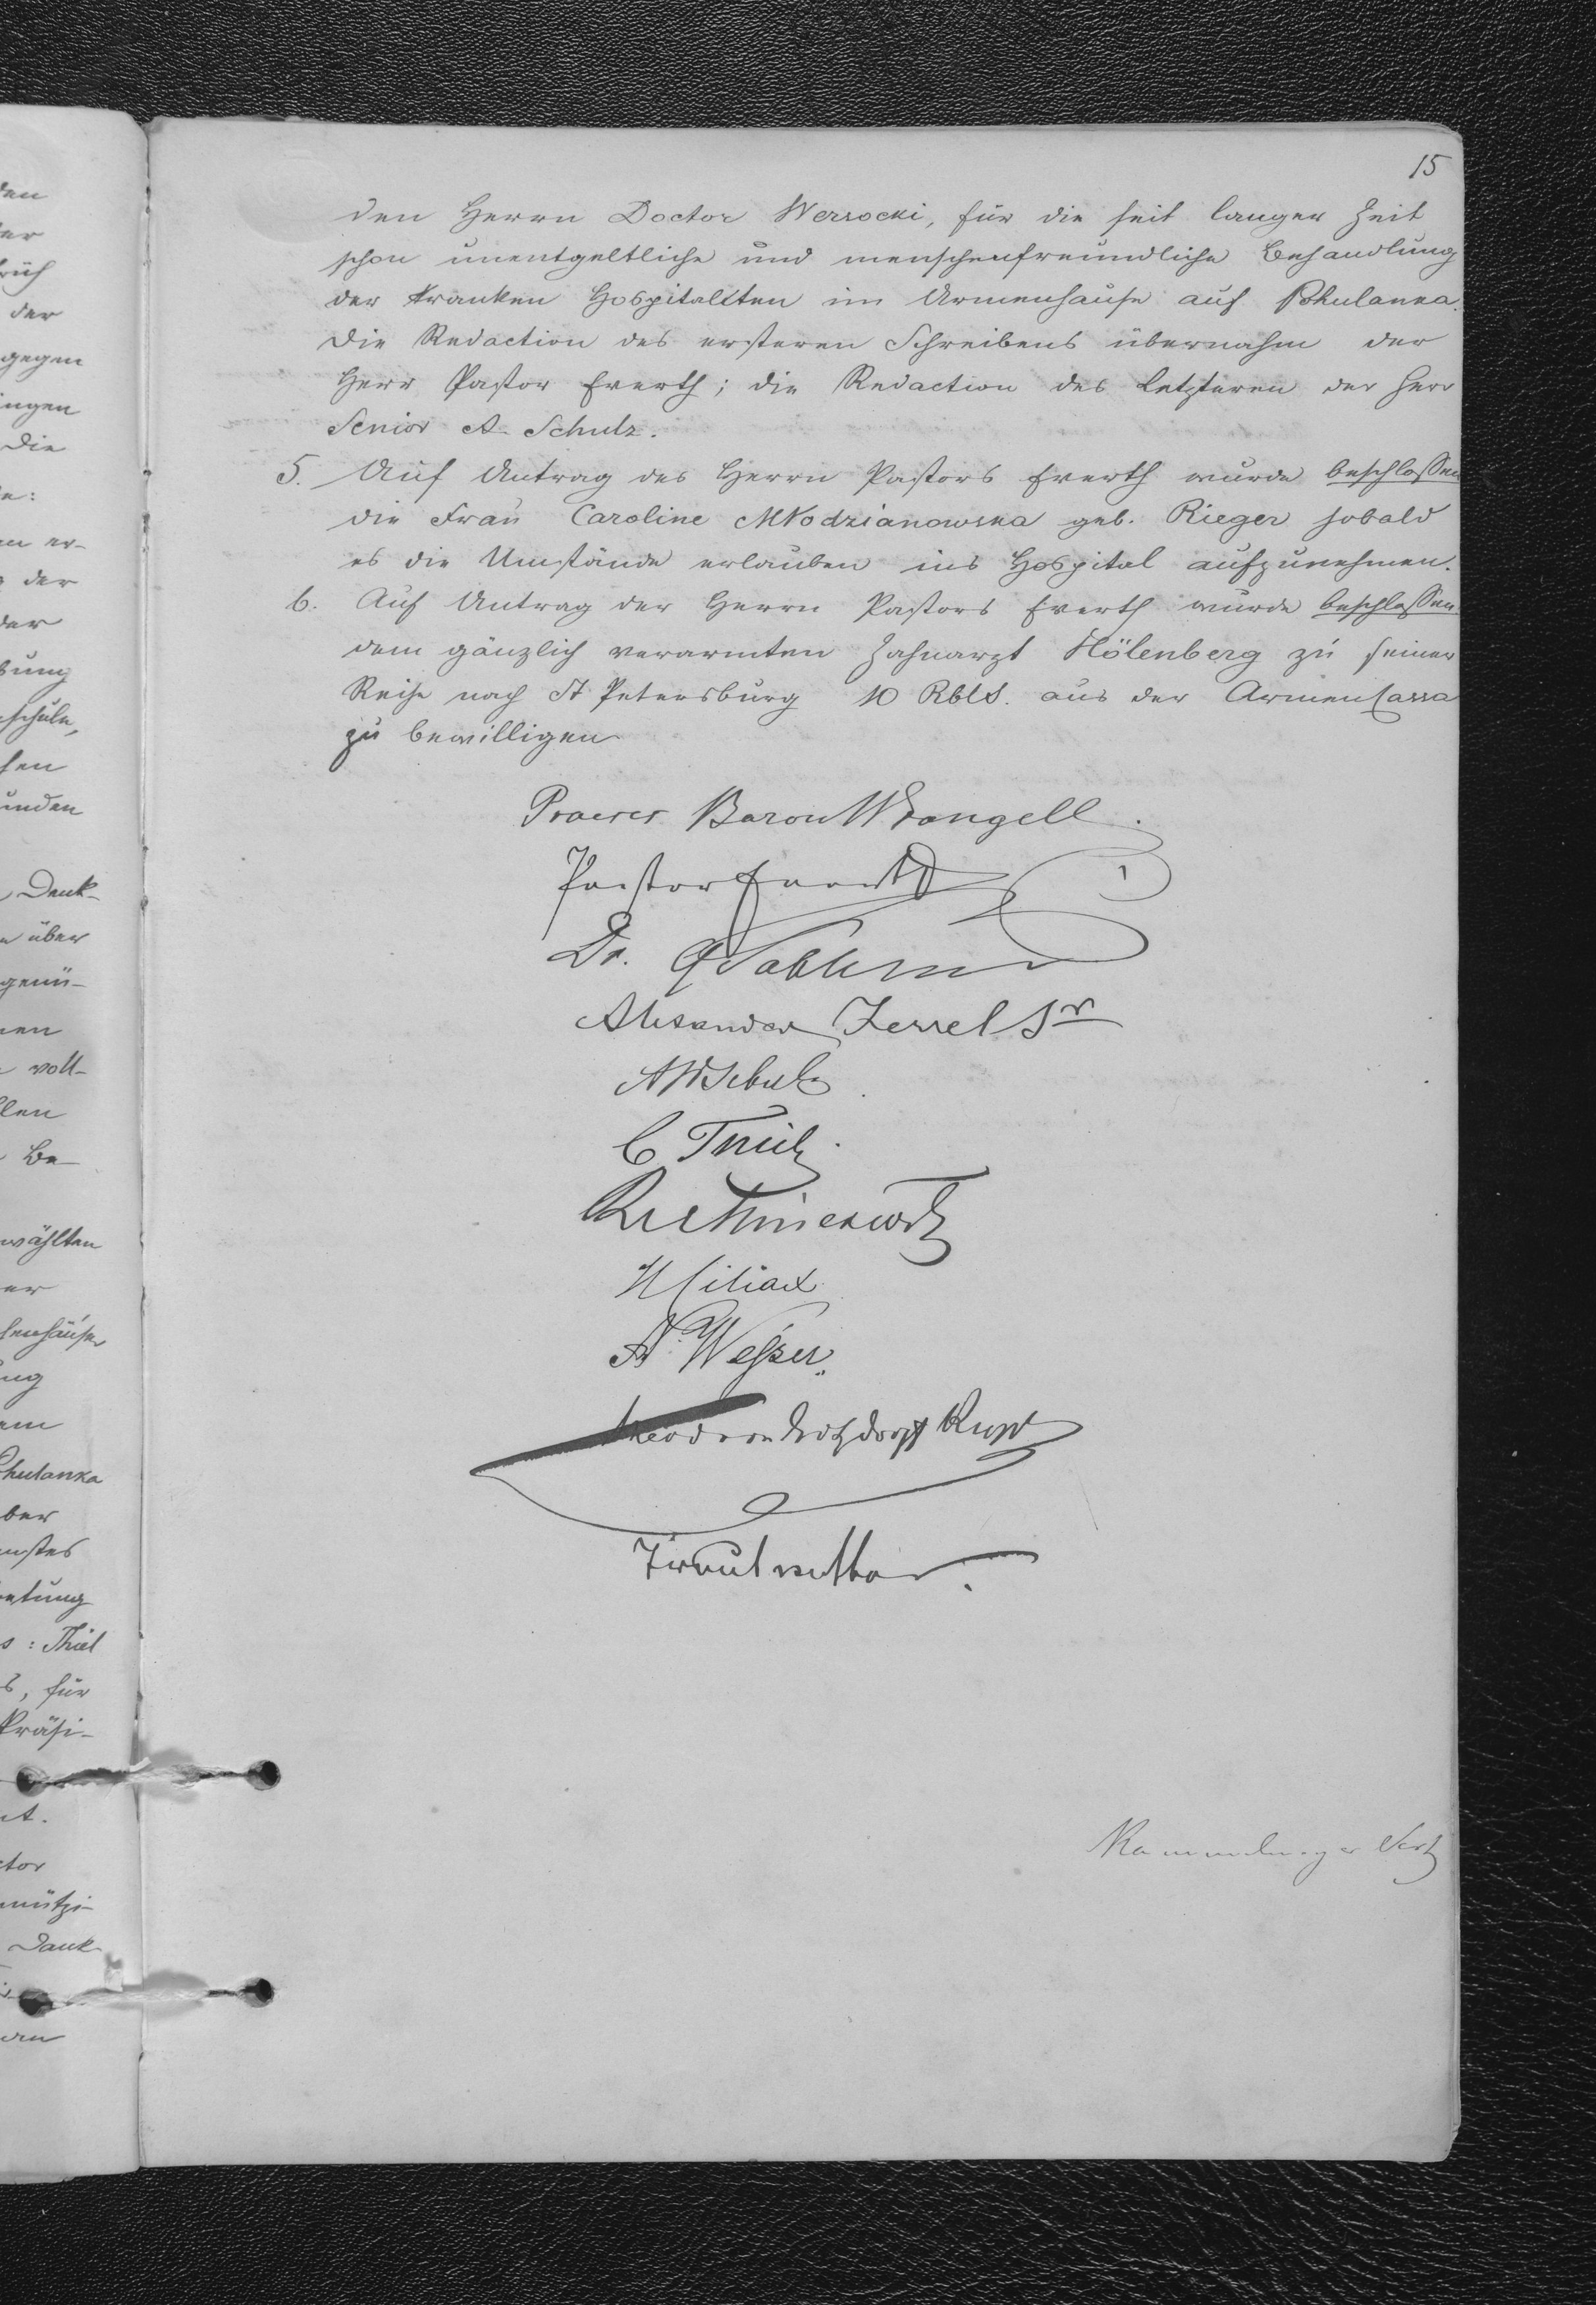 15
den Herrn Doctor Werrocki, für die seit langer Zeit
schon unentgeltliche und menschenfreundliche Behandlung
der kranken Hospitaliten im Armenhause auf Pohulanka.
Die Redaction des ersteren Schreibens übernahm der
Herr Pastor Everth; die Redaction des Letzteren der Herr
Senior A. Schulz.
5. Auf Antrag des Herrn Pastors Everth wurde beschlossen
die Frau Caroline Młodzianowska geb. Rieger sobald
es die Umstände erlauben ins Hospital aufzunehmen.
6. Auf Antrag der Herrn Pastors Everth wurde beschlossen
dem gänzlich verarmten Zahnarzt Hölenberg zu seiner
Reise nach St Petersburg 10 Rbls. aus der ArmenCassa
zu bewilligen
Praeses Baron Wrangell.
Pastor Everth
Dr.
Alexander
AWSchulz
C Thiel
A. Wesser
den
der
der
gegen
ingen
Die
er-
der
der
schule,
Dank-
über
genü-
voll-
Be-
wählten
er
Pohulanka
: Thiel
, für
Präsi-
A.
nützi-
Dank-